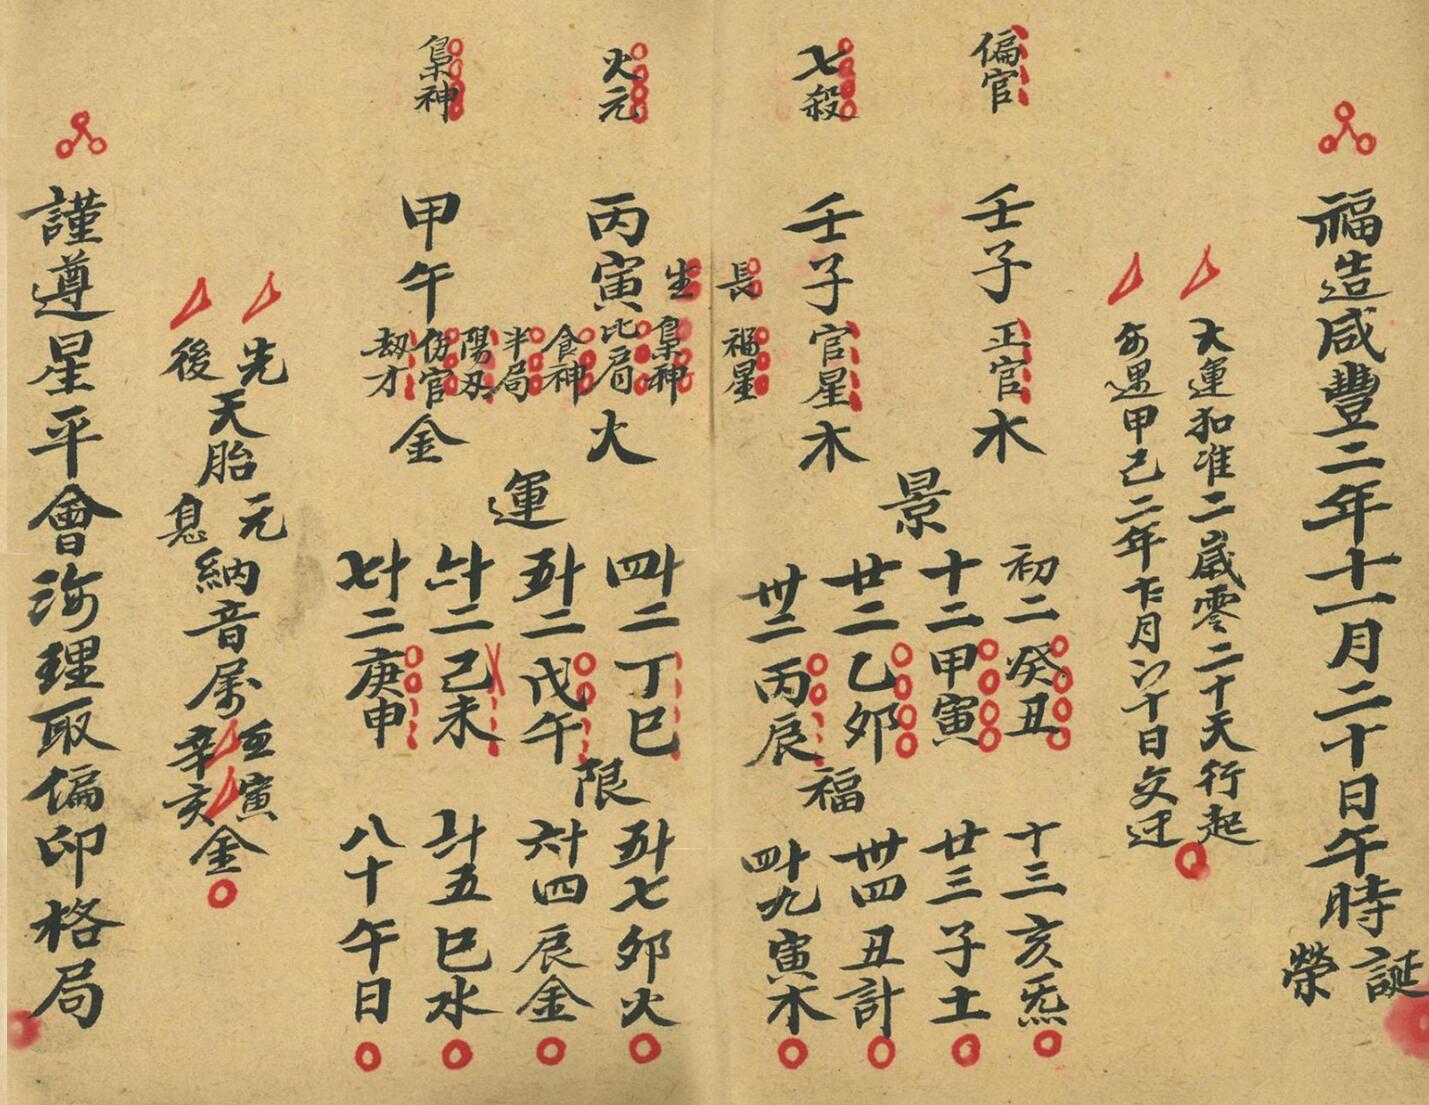 福造咸豐二年十一月二十日午時榮誕
大運扣准二歲零二十天行起
每遇甲己二年十二月六十日交迁
偏官
壬子
正官
木
七殺
壬子
官星
木
長生
福星
火元
丙寅
梟神
比肩
食神
火
半局
陽刃
梟神
甲午
傷官
劫才
金
景運
初二癸丑
十二甲寅
廿二乙卯
卅二丙辰
四十二丁巳
五十二戊午
六十二己未
七十二庚申
福限
十三亥炁
廿三子土
卅四丑計
四十九寅木
五十七卯火
六十四辰金
七十五巳水
八十午日
先後天胎元息納音屬壬寅辛亥金
謹遵星平會海理取偏印格局